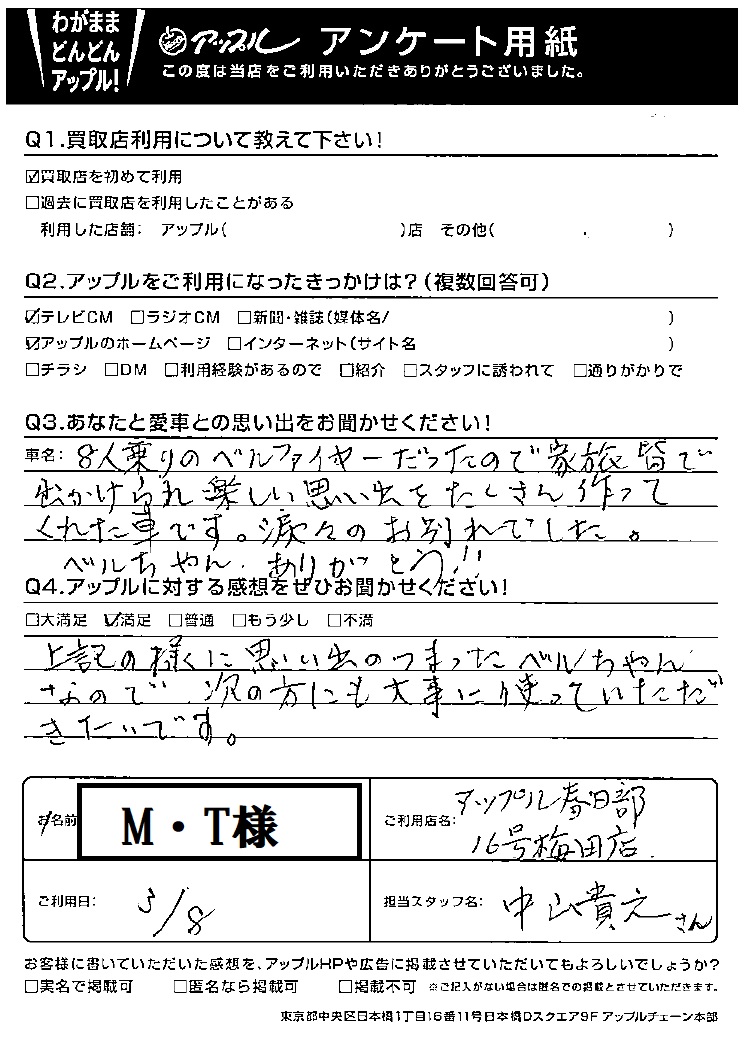 わがまま
どんどん
アップル!
アップル アンケート用紙
この度は当店をご利用いただきありがとうございました。
Q1.買取店利用について教えて下さい!
☑買取店を初めて利用
□過去に買取店を利用したことがある
利用した店舗: アップル( )店 その他( )
Q2.アップルをご利用になったきっかけは?(複数回答可)
☑テレビCM □ラジオCM □新聞・雑誌(媒体名/ )
☑アップルのホームページ □インターネット(サイト名 )
□チラシ □DM □利用経験があるので □紹介 □スタッフに誘われて □通りがかりで
Q3.あなたと愛車との思い出をお聞かせください!
車名: 8人乗りのベルファイヤーだったので家族皆で
出かけられ楽しい思い出をたくさん作って
くれた車です。涙々のお別れでした。
ベルちゃん、ありがとう!!
Q4.アップルに対する感想をぜひお聞かせください!
□大満足 ☑満足 □普通 □もう少し □不満
上記の様に思い出のつまったベルちゃん
なので、次の方にも大事に使っていただ
きたいです。
お名前 M・T様
ご利用店名: アップル春日部
16号梅田店
ご利用日: 3/8
担当スタッフ名: 中山貴之さん
お客様に書いていただいた感想を、アップルHPや広告に掲載させていただいてもよろしいでしょうか?
□実名で掲載可 □匿名なら掲載可 □掲載不可 ※ご記入がない場合は匿名での掲載とさせていただきます。
東京都中央区日本橋1丁目16番11号日本橋Dスクエア9F アップルチェーン本部